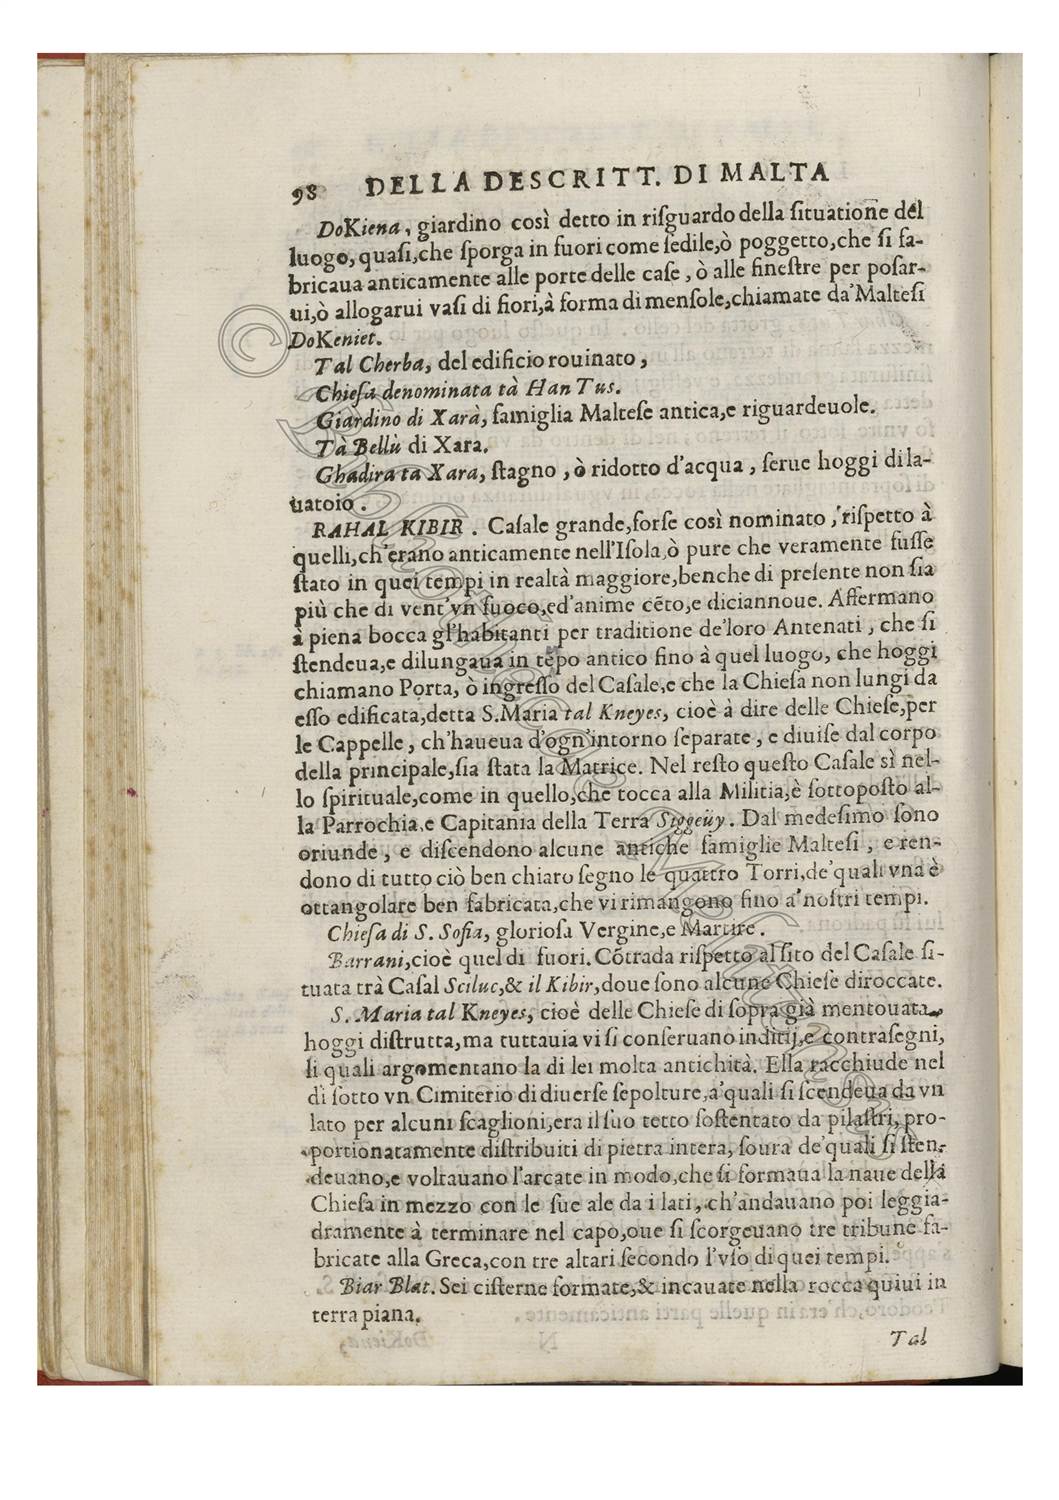 98 DELLA DESCRITT. DI MALTA
DoKiena, giardino così detto in riſguardo della ſituatione del
luogo, quaſi,che ſporga in fuori come ſedile,ò poggetto,che ſi fa-
bricaua anticamente alle porte delle caſe, ò alle fineſtre per poſar-
ui,ò allogarui vaſi di fiori,à forma di menſole,chiamate da'Malteſi
DoKeniet.
Tal Cherba, del edificio rouinato,
Chieſa denominata tà Han Tus.
Giardino di Xarà, famiglia Malteſe antica,e riguardeuole.
Tà Bellù di Xara.
Ghadira ta Xara, ſtagno, ò ridotto d'acqua, ſerue hoggi di la-
uatoio.
RAHAL KIBIR. Caſale grande,forſe così nominato, riſpetto à
quelli,ch'erano anticamente nell'Iſola,ò pure che veramente fuſſe
ſtato in quei tempi in realtà maggiore,benche di preſente non ſia
più che di vent'vn fuoco,ed'anime cẽto,e diciannoue. Affermano
à piena bocca gl'habitanti per traditione de'loro Antenati, che ſi
ſtendeua,e dilungaua in tẽpo antico fino à quel luogo, che hoggi
chiamano Porta, ò ingreſſo del Caſale,e che la Chieſa non lungi da
eſſo edificata,detta S.Maria tal Kneyes, cioè à dire delle Chieſe,per
le Cappelle, ch'haueua d'ogn'intorno ſeparate, e diuiſe dal corpo
della principale,ſia ſtata la Matrice. Nel reſto queſto Caſale sì nel-
lo ſpirituale,come in quello,che tocca alla Militia,è ſottopoſto al-
la Parrochia,e Capitania della Terra Siggeuy. Dal medeſimo ſono
oriunde, e diſcendono alcune antiche famiglie Malteſi, e ren-
dono di tutto ciò ben chiaro ſegno le quattro Torri,de'quali vna è
ottangolare ben fabricata,che vi rimangono fino a'noſtri tempi.
Chieſa di S. Sofia, glorioſa Vergine,e Martire.
Barrani,cioè quel di fuori. Cõtrada riſpetto al ſito del Caſale ſi-
tuata trà Caſal Sciluc,& il Kibir,doue ſono alcune Chieſe diroccate.
S. Maria tal Kneyes, cioè delle Chieſe di ſopra già mentouata,
hoggi diſtrutta,ma tuttauia vi ſi conſeruano inditij,e contraſegni,
li quali argomentano la di lei molta antichità. Ella racchiude nel
di ſotto vn Cimiterio di diuerſe ſepolture,a'quali ſi ſcendeua da vn
lato per alcuni ſcaglioni,era il ſuo tetto ſoſtentato da pilaſtri, pro-
portionatamente diſtribuiti di pietra intera, ſoura de'quali ſi ſten-
deuano,e voltauano l'arcate in modo,che ſi formaua la naue della
Chieſa in mezzo con le ſue ale da i lati, ch'andauano poi leggia-
dramente à terminare nel capo,oue ſi ſcorgeuano tre tribune fa-
bricate alla Greca,con tre altari ſecondo l'vſo di quei tempi.
Biar Blat. Sei ciſterne formate,& incauate nella rocca quiui in
terra piana.
Tal